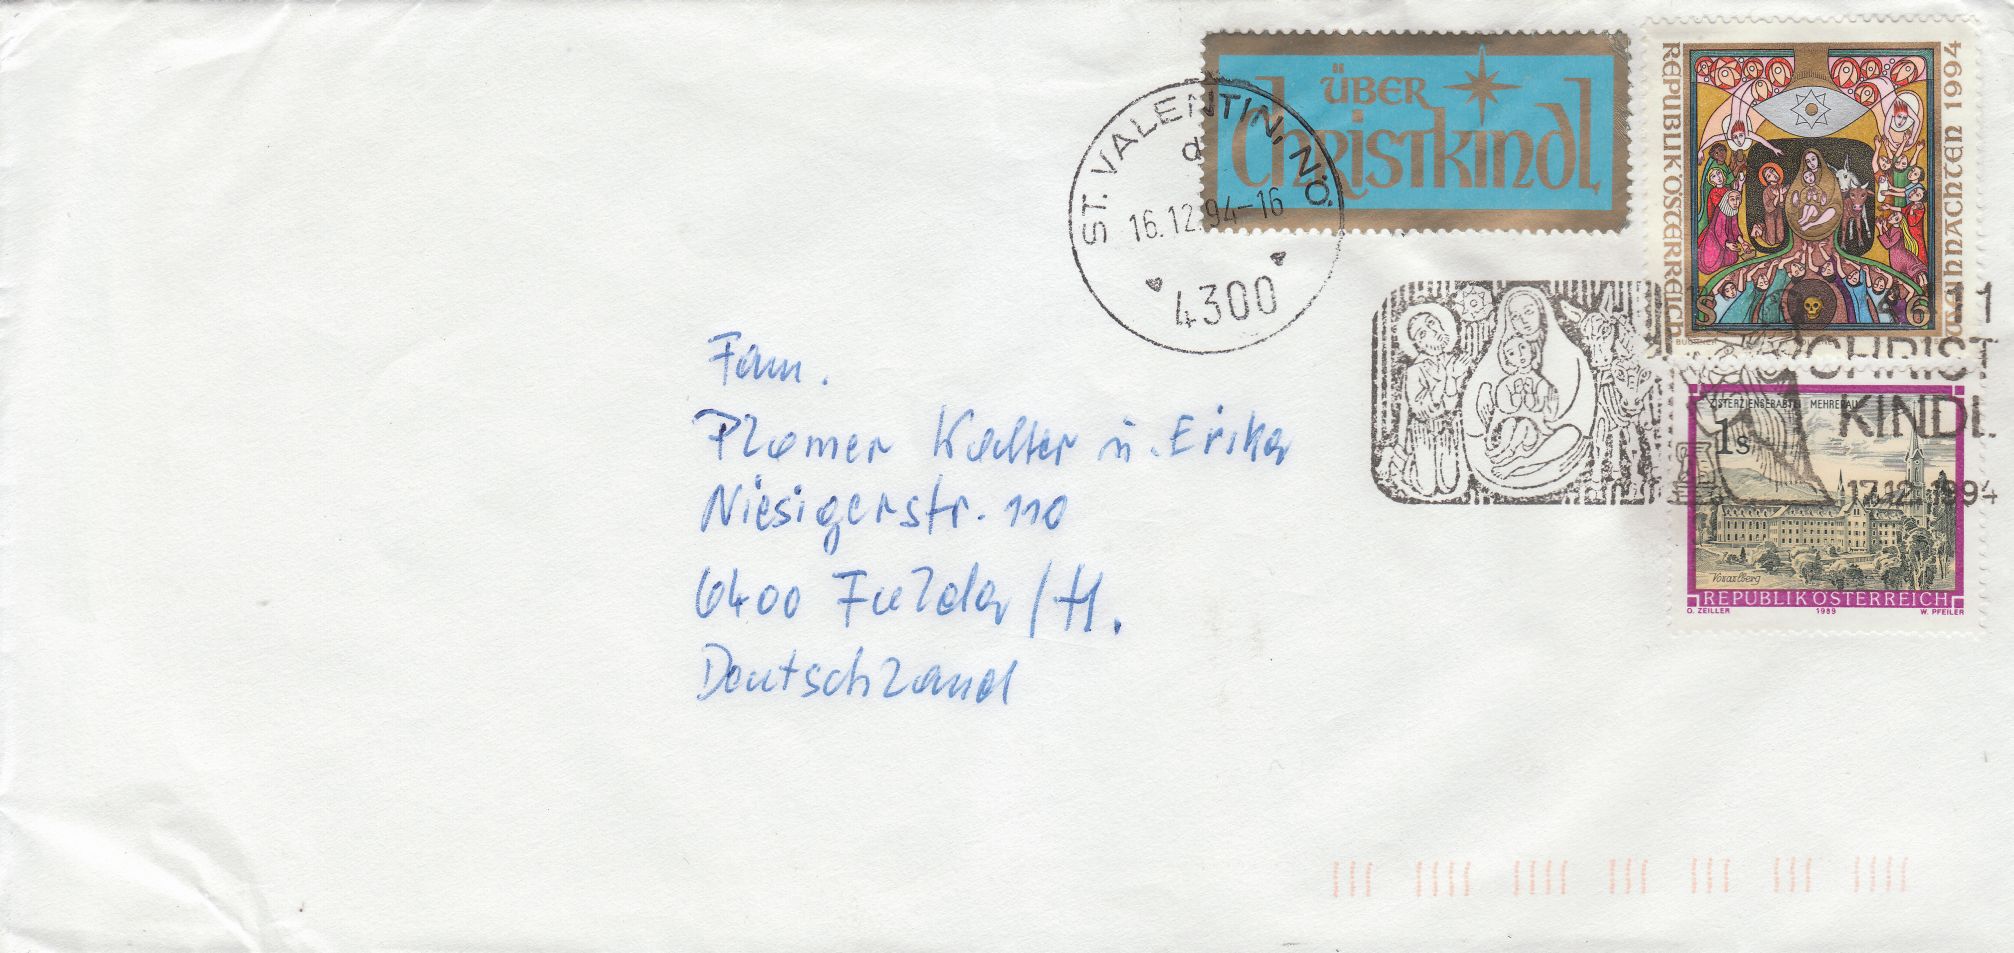 ÜBER
Christkindl
REPUBLIK ÖSTERREICH
WEIHNACHTEN 1994
S 6
ST. VALENTIN, NÖ.
d
16.12.94-16
4300
4411
CHRIST
KINDL
17.12.1994
ZISTERZIENSERABTEI MEHRERAU
1s
Vorarlberg
REPUBLIK ÖSTERREICH
O. ZEILLER 1989 W. PFEILER
Fam.
Plomer Kalter u. Erika
Niesigerstr. 110
6400 Fulda/H.
Deutschland